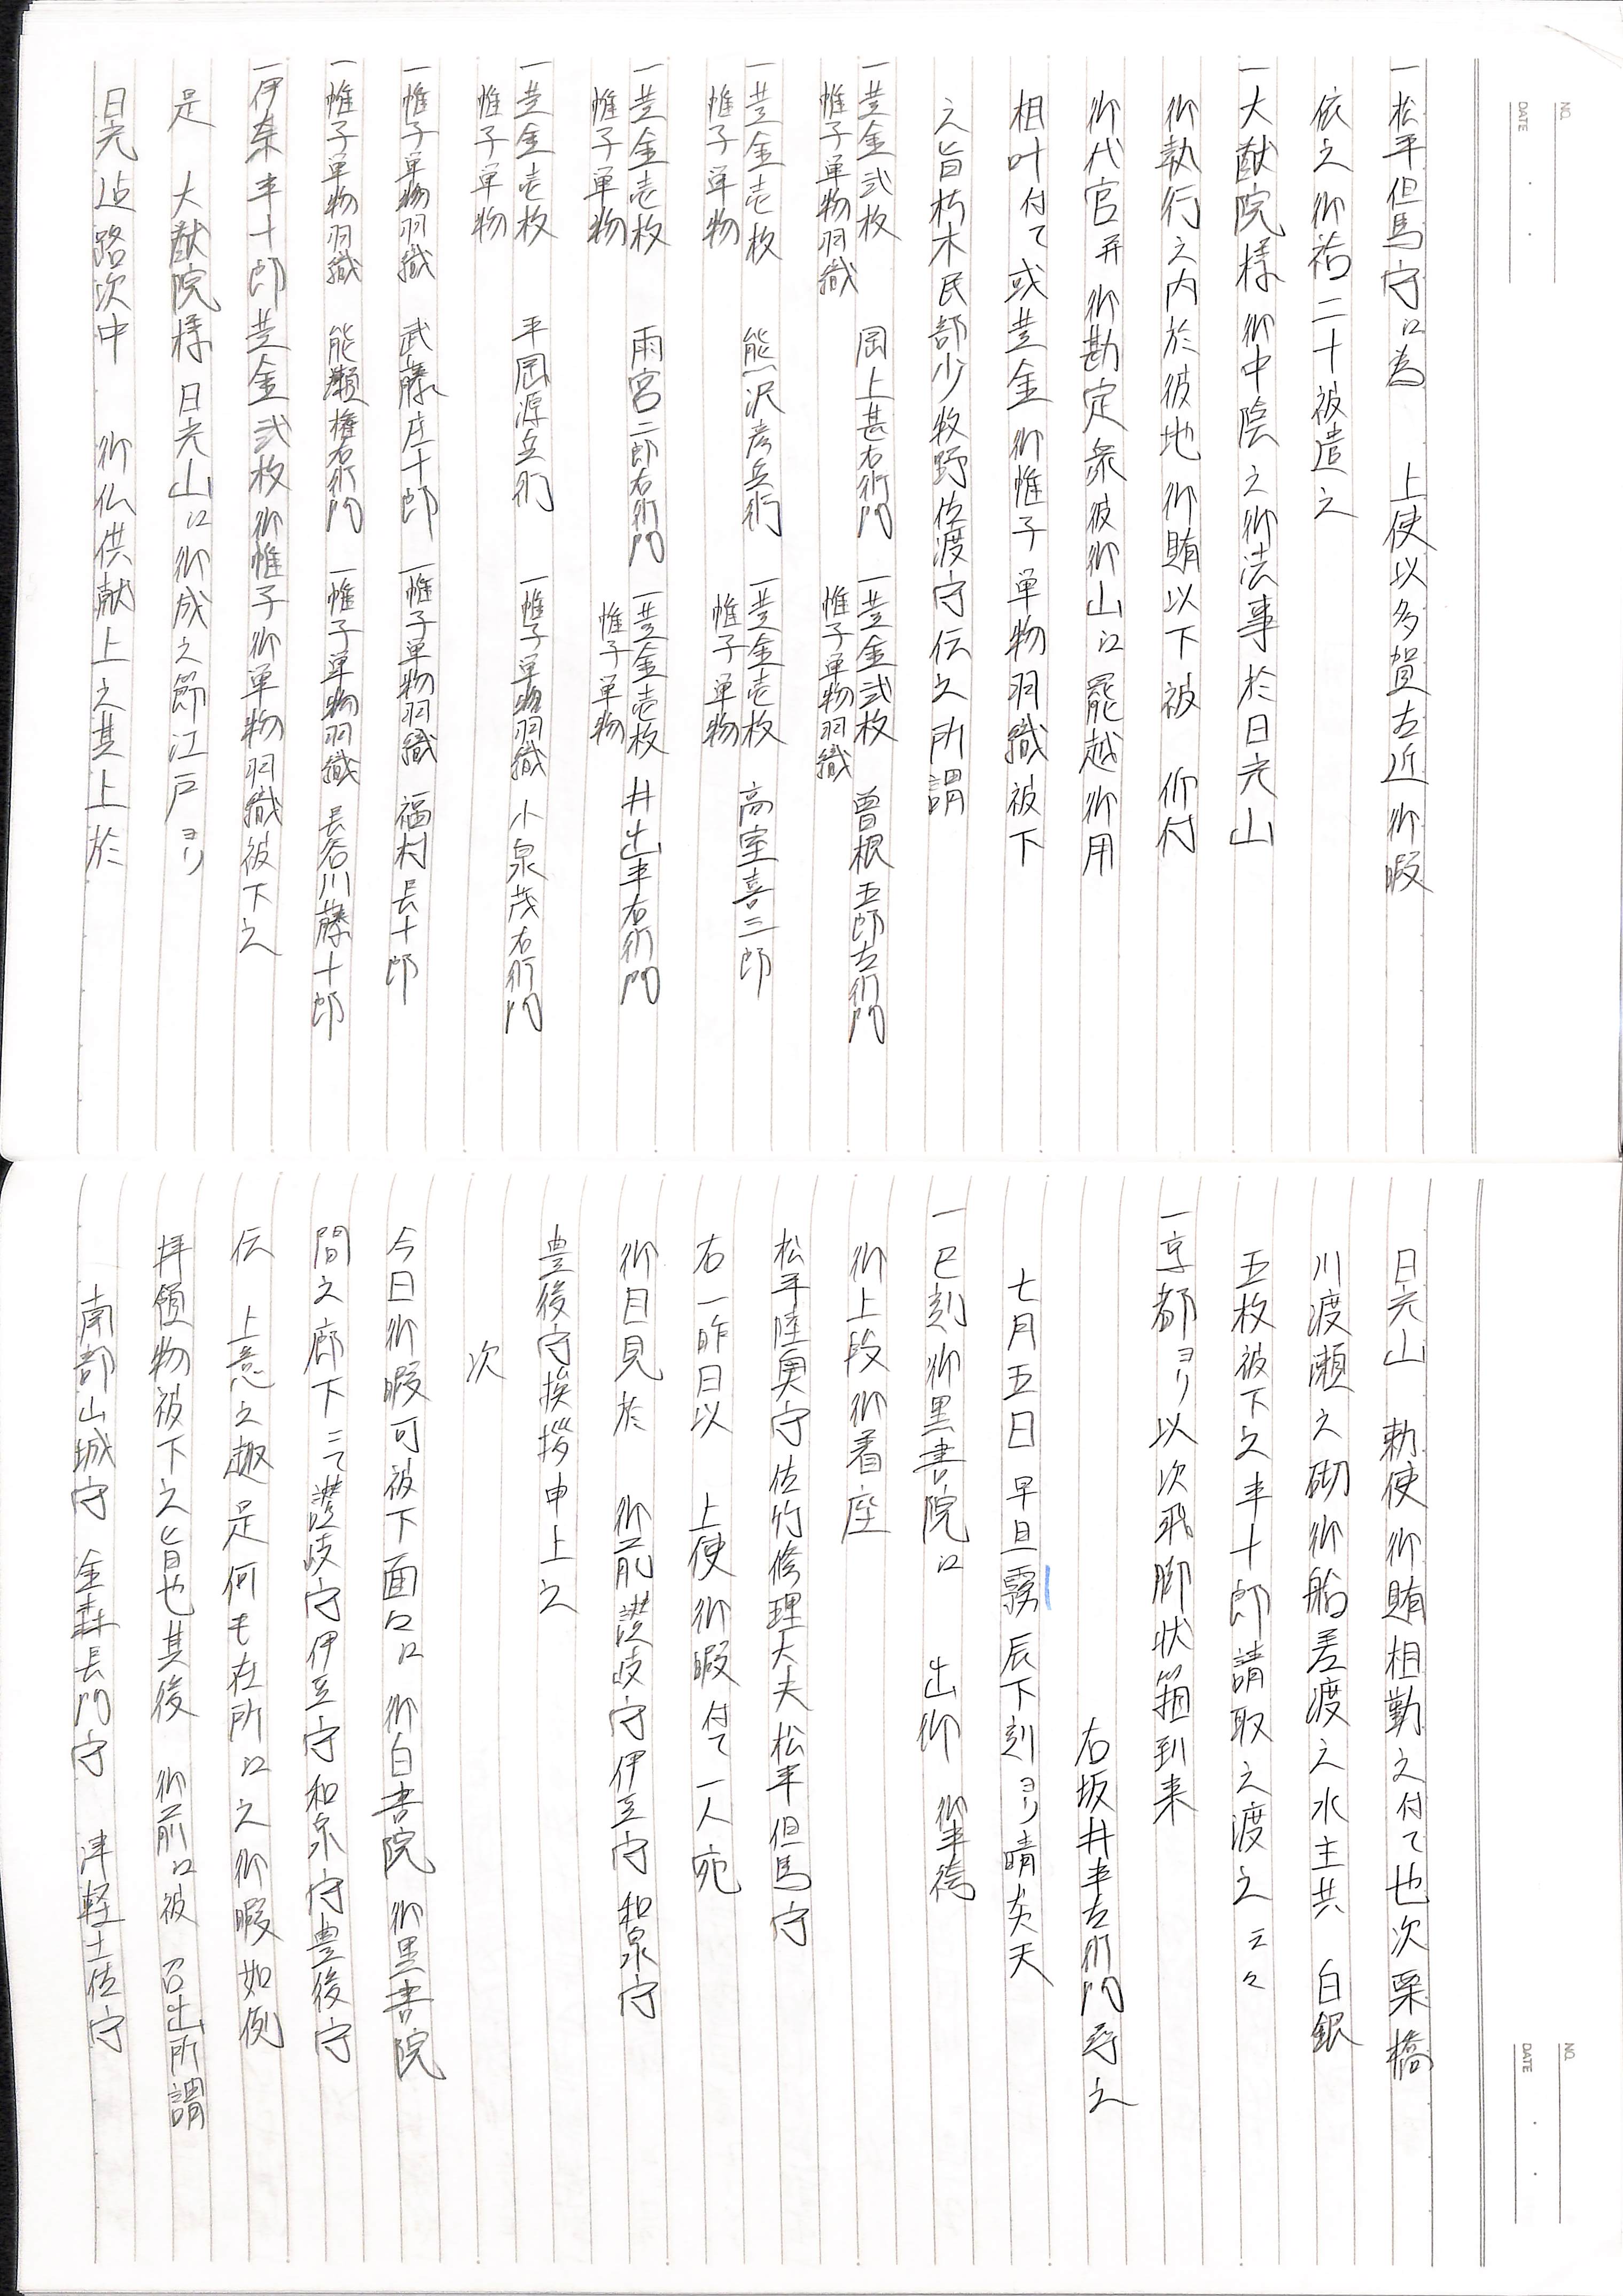 一松平但馬守江為　上使以多賀左近御暇
依之御袷二十被遣之
一大猷院様御中陰之御法事於日光山
御執行之内於彼地御賄以下被　仰付
御代官并御勘定衆彼御山江罷越御用
相叶付て或黄金御帷子単物羽織被下
之旨朽木民部少牧野佐渡守伝之所謂
一黄金弐枚
帷子単物羽織　岡上甚右衛門　一黄金弐枚
帷子単物羽織　曽根五郎左衛門
一黄金壱枚
帷子単物　熊沢彦兵衛　一黄金壱枚
帷子単物　高室喜三郎
一黄金壱枚
帷子単物　雨宮二郎右衛門　一黄金壱枚
帷子単物　井出半右衛門
一黄金壱枚
帷子単物　平岡源兵衛　一帷子単物羽織　小泉茂右衛門
一帷子単物羽織　武藤庄十郎　一帷子単物羽織　福村長十郎
一帷子単物羽織　能瀬権右衛門　一帷子単物羽織　長谷川藤十郎
一伊奈半十郎黄金弐枚御帷子御単物羽織被下之
是　大猷院様日光山江御成之節江戸ヨリ
日光迠路次中　御仏供献上之其上於
日光山　勅使御賄相勤之付て也次栗橋
川渡瀬之砌御船差渡之水主共　白銀
五枚被下之半十郎請取之渡之云々
一京都ヨリ以次飛脚状箱到来
右坂井半左衛門尋之
七月五日　早旦霧　辰下刻ヨリ晴炎天
一巳刻御黒書院江　出御　御半袴
御上段御着座
松平陸奥守佐竹修理大夫松平但馬守
右一昨日以　上使御暇付て一人宛
御目見於　御前讃岐守伊豆守和泉守
豊後守挨拶申上之
次
今日御暇可被下面々江　御白書院御黒書院
間之廊下ニて讃岐守伊豆守和泉守豊後守
伝　上意之趣是何モ在所江之御暇如例
拝領物被下之旨也其後　御前江被　召出所謂
南部山城守　金森長門守　津軽土佐守